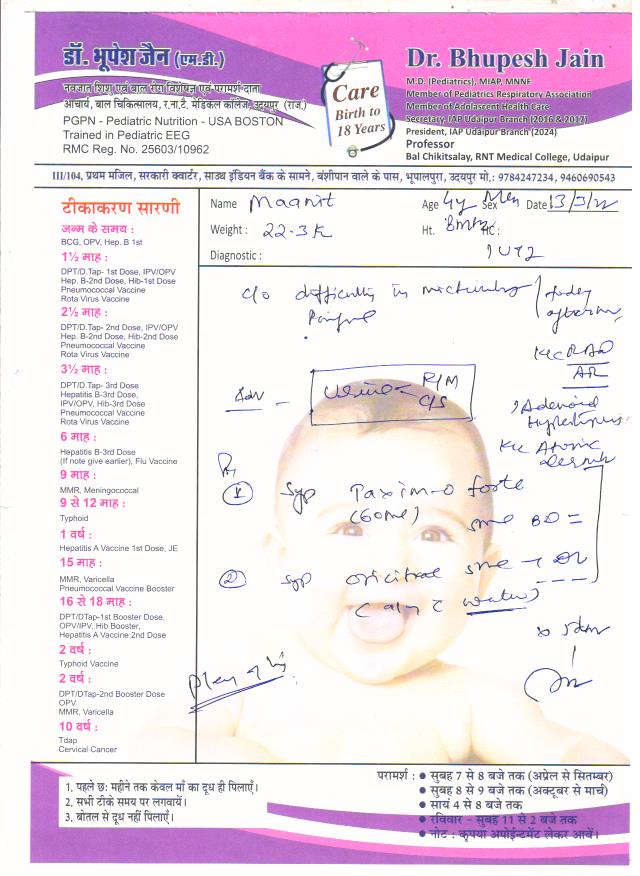 डॉ. भूपेश जैन (एम.डी.)
नवजात शिशु एवं बाल रोग विशेषज्ञ एवं परामर्शदाता
आचार्य, बाल चिकित्सालय, र.ना.टै. मेडिकल कॉलेज, उदयपुर (राज.)
PGPN - Pediatric Nutrition - USA BOSTON
Trained in Pediatric EEG
RMC Reg. No. 25603/10962
Care
Birth to
18 Years
Dr. Bhupesh Jain
M.D. (Pediatrics), MIAP, MNNF
Member of Pediatrics Respiratory Association
Member of Adolascent Health Care
Secretary, IAP Udaipur Branch (2016 & 2017)
President, IAP Udaipur Branch (2024)
Professor
Bal Chikitsalay, RNT Medical College, Udaipur
III/104, प्रथम मंजिल, सरकारी क्वार्टर, साउथ इंडियन बैंक के सामने, बंशीपान वाले के पास, भूपालपुरा, उदयपुर मो.: 9784247234, 9460690543
टीकाकरण सारणी
जन्म के समय :
BCG, OPV, Hep. B 1st
1½ माह :
DPT/D.Tap- 1st Dose, IPV/OPV
Hep. B-2nd Dose, Hib-1st Dose
Pneumococcal Vaccine
Rota Virus Vaccine
2½ माह :
DPT/D.Tap- 2nd Dose, IPV/OPV
Hep. B-2nd Dose, Hib-2nd Dose
Pneumococcal Vaccine
Rota Virus Vaccine
3½ माह :
DPT/D.Tap- 3rd Dose
Hepatitis B-3rd Dose,
IPV/OPV, Hib-3rd Dose
Pneumococcal Vaccine
Rota Virus Vaccine
6 माह :
Hepatitis B-3rd Dose
(If note give earlier), Flu Vaccine
9 माह :
MMR, Meningococcal
9 से 12 माह :
Typhoid
1 वर्ष :
Hepatitis A Vaccine 1st Dose, JE
15 माह :
MMR, Varicella
Pneumococcal Vaccine Booster
16 से 18 माह :
DPT/DTap-1st Booster Dose,
OPV/IPV, Hib Booster,
Hepatitis A Vaccine 2nd Dose
2 वर्ष :
Typhoid Vaccine
2 वर्ष :
DPT/DTap-2nd Booster Dose
OPV
MMR, Varicella
10 वर्ष :
Tdap
Cervical Cancer
Name Maanit Age 4y Sex Date 13/3/22
Weight : 22.3K Ht. HC :
Diagnostic :
c/o difficulty in micturing today
Painful
Adv - Urine - R/M
C/S
AR
Adenoid
K/c Atopic
① Syp Taxim-O forte
(60ml) 5ml BD
② Syp oricitral 5ml
water)
x 5day
1. पहले छ: महीने तक केवल माँ का दूध ही पिलाएँ।
2. सभी टीके समय पर लगवायें।
3. बोतल से दूध नहीं पिलाएँ।
परामर्श : ● सुबह 7 से 8 बजे तक (अप्रेल से सितम्बर)
● सुबह 8 से 9 बजे तक (अक्टूबर से मार्च)
● सायं 4 से 8 बजे तक
● रविवार - सुबह 11 से 2 बजे तक
● नोट : कृपया अपोईन्टमेंट लेकर आवें।